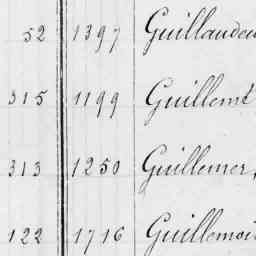 52 1397 Guillaudeu
315 1199 Guillemt
313 1250 Guillemer,
122 1716 Guillemoi